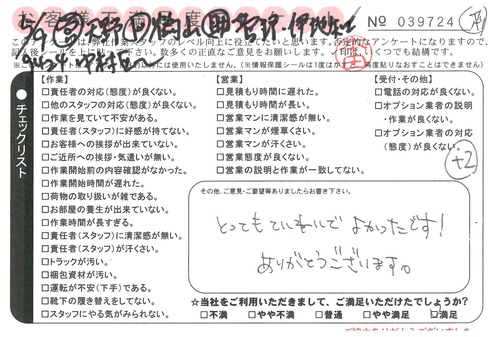 No 039724
このアンケートは弊社作業スタッフのレベル向上に役立てたいと思います。否定的なアンケートになりますが、
記入後シールを上に貼って下さい。多数の正直なご意見をお願いします。□印は、いくつでも結構です。
【作業】
□責任者の対応(態度)が良くない。
□他のスタッフの対応(態度)が良くない。
□作業を見ていて不安がある。
□責任者(スタッフ)に好感が持てない。
□お客様への挨拶が出来ていない。
□ご近所への挨拶・気遣いが無い。
□作業開始前の内容確認がなかった。
□作業開始時間が遅れた。
□荷物の取り扱いが雑である。
□お部屋の養生が出来ていない。
□作業時間が長すぎる。
□責任者(スタッフ)に清潔感が無い。
□責任者(スタッフ)が汗くさい。
□トラックが汚い。
□梱包資材が汚い。
□運転が不安(下手)である。
□靴下の履き替えをしてない。
□スタッフにやる気がみられない。
【営業】
□見積もり時間に遅れた。
□見積もり時間が長い。
□営業マンに清潔感が無い。
□営業マンが煙草くさい。
□営業マンが汗くさい。
□営業態度が良くない。
□営業の説明と作業が一致してない。
【受付・その他】
□電話の対応が良くない。
□オプション業者の説明
・作業が良くない。
□オプション業者の対応
(態度)が良くない。
+2
チェックリスト
その他、ご意見・ご要望等ありましたらお書き下さい。
とってもていねいでよかったです!
ありがとうございます。
☆当社をご利用いただきまして、ご満足いただけたでしょうか?
□不満 □やや不満 □普通 □やや満足 □満足